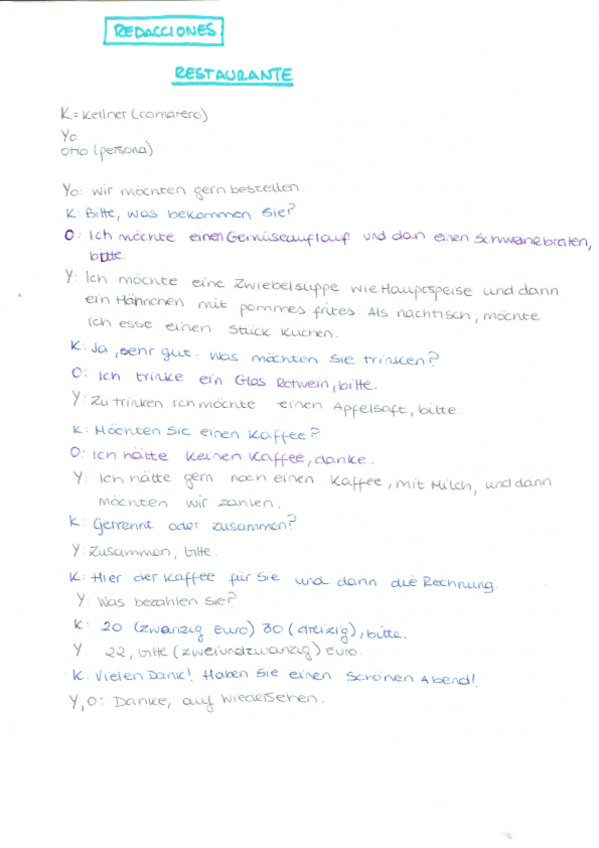 REDACCIONES
RESTAURANTE
K = Kellner (camarero)
Yo
Otto (persona)
Yo: Wir möchten gern bestellen.
K: Bitte, was bekommen Sie?
O: Ich möchte einen Gemüseauflauf und dan einen Schweinebraten,
bitte.
Y: Ich möchte eine Zwiebelsuppe wie Hauptspeise und dann
ein Hähnchen mit pommes frites. Als nachtisch, möchte
ich esse einen Stück Kuchen.
K: Ja, sehr gut. Was möchten Sie trinken?
O: Ich trinke ein Glas Rotwein, bitte.
Y: Zu trinken ich möchte einen Apfelsaft, bitte.
K: Möchten Sie einen Kaffee?
O: Ich hätte keinen Kaffee, danke.
Y: Ich hätte gern noch einen Kaffee, mit Milch, und dann
möchten wir zahlen.
K: Getrennt oder zusammen?
Y: Zusammen, bitte.
K: Hier der Kaffee für Sie und dann die Rechnung.
Y: Was bezahlen Sie?
K: 20 (zwanzig euro) 30 (dreizig), bitte.
Y: 22, bitte (zweiundzwanzig) euro.
K: Vielen Dank! Haben Sie einen Schönen Abend!
Y, O: Danke, auf wiedersehen.